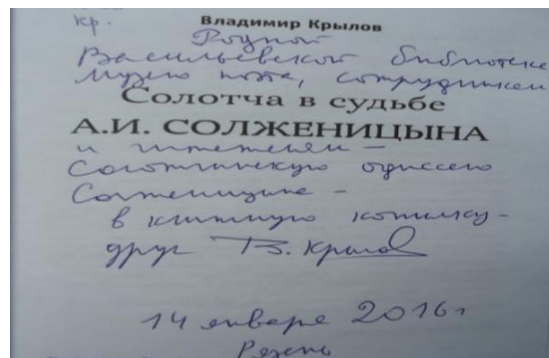 кр.
Владимир Крылов
Родной
Васильевской библиотеке
музею поэта, сотрудникам
Солотча в судьбе
А.И. СОЛЖЕНИЦЫНА
и
Солотчинскую одиссею
Солженицына –
в книжную копилку –
друг В. Крылов
14 января 2016 г
Рязань